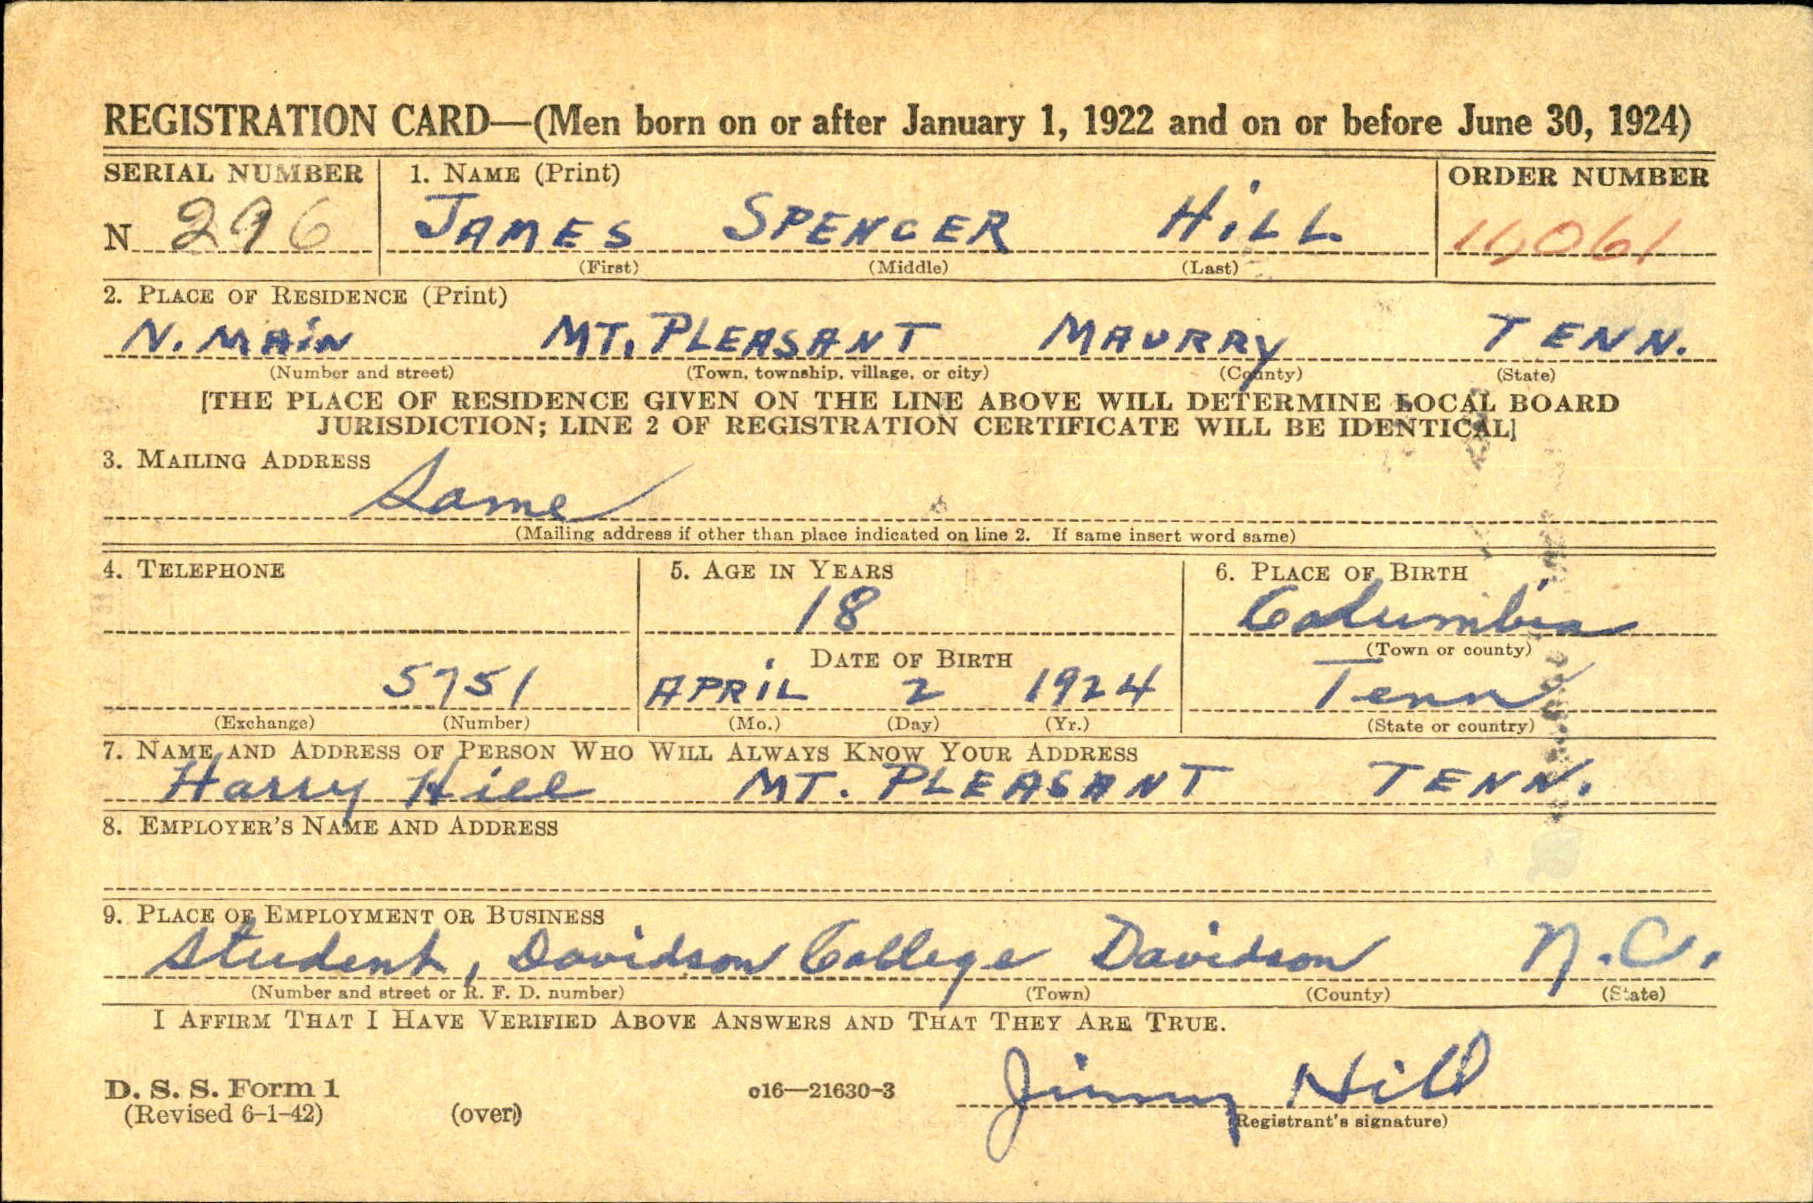 REGISTRATION CARD—(Men born on or after January 1, 1922 and on or before June 30, 1924)
SERIAL NUMBER 1. NAME (Print) ORDER NUMBER
N 296 JAMES SPENCER HILL 11,061
(First) (Middle) (Last)
2. PLACE OF RESIDENCE (Print)
N. MAIN MT. PLEASANT MAURRY TENN.
(Number and street) (Town, township, village, or city) (County) (State)
[THE PLACE OF RESIDENCE GIVEN ON THE LINE ABOVE WILL DETERMINE LOCAL BOARD
JURISDICTION; LINE 2 OF REGISTRATION CERTIFICATE WILL BE IDENTICAL]
3. MAILING ADDRESS
Same
(Mailing address if other than place indicated on line 2. If same insert word same)
4. TELEPHONE 5. AGE IN YEARS 6. PLACE OF BIRTH
18 Columbia
DATE OF BIRTH (Town or county)
5751 APRIL 2 1924 Tenn
(Exchange) (Number) (Mo.) (Day) (Yr.) (State or country)
7. NAME AND ADDRESS OF PERSON WHO WILL ALWAYS KNOW YOUR ADDRESS
Harry Hill MT. PLEASANT TENN.
8. EMPLOYER'S NAME AND ADDRESS
9. PLACE OF EMPLOYMENT OR BUSINESS
Student, Davidson College Davidson N.C.
(Number and street or R. F. D. number) (Town) (County) (State)
I AFFIRM THAT I HAVE VERIFIED ABOVE ANSWERS AND THAT THEY ARE TRUE.
D. S. S. Form 1 o16—21630-3 Jimmy Hill
(Revised 6-1-42) (over) (Registrant's signature)